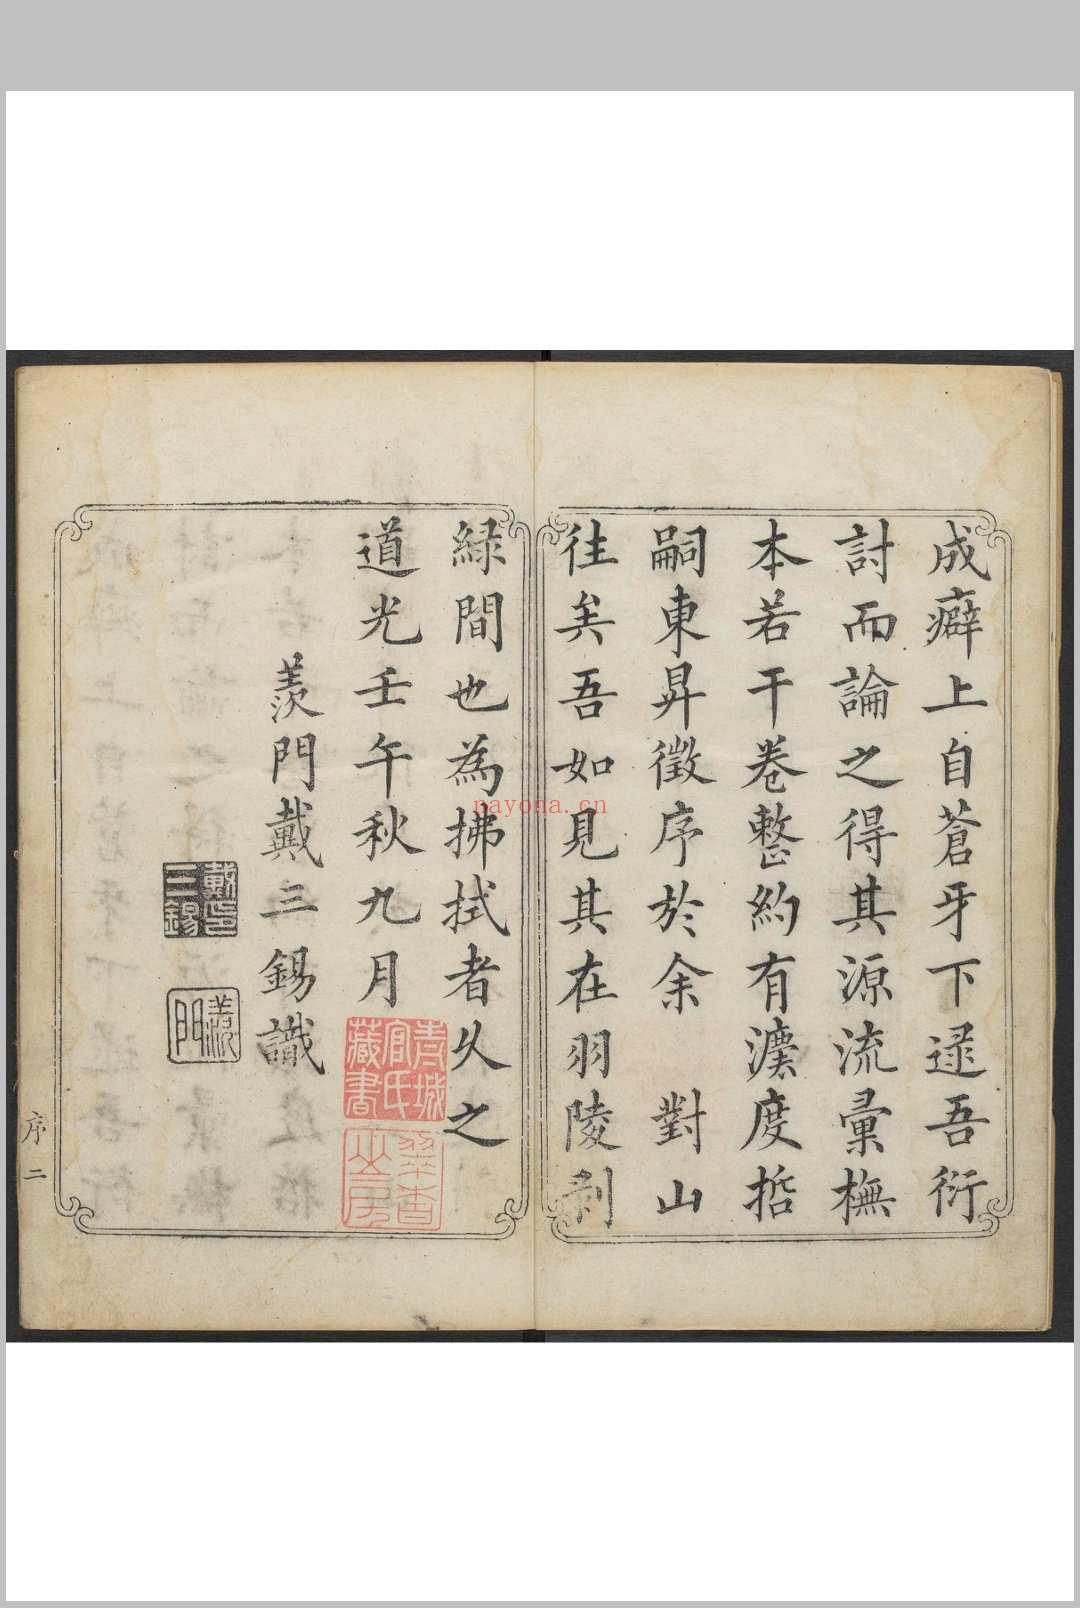 成癖上自蒼牙下逯吾衍
討而論之得其源流彙橅
本若干卷整約有灋度悊
嗣東昇徵序於余 對山
往矣吾如見其在羽陵剥
緑間也為拂拭者久之
道光壬午秋九月
羨門戴三錫識
戴三錫印
羨門
青城官氏藏書
翠杏山房
序二
nayona.cn